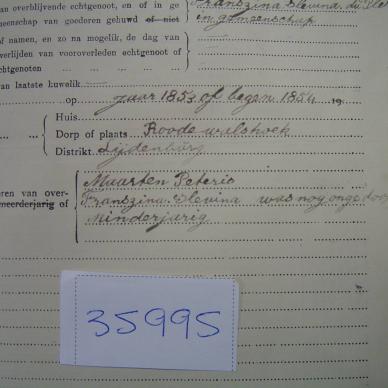 van overblijvende echtgenoot, en of in ge
Franszina Slevina, die
meenschap van goederen gehuwd of niet
in gemeenschap
of namen, en zo na mogelik, de dag van
overlijden van vooroverleden echtgenoot of
echtgenoten
van laatste huwelik
op jaar 1853 of begen 1854 19
Huis
Dorp of plaats Roodewalshoek
Distrikt Lijdenburg
eren van over-
meerderjarig of
Maarten Peteris
Franszina Slevina was nog onge doop
Minderjarig
35995